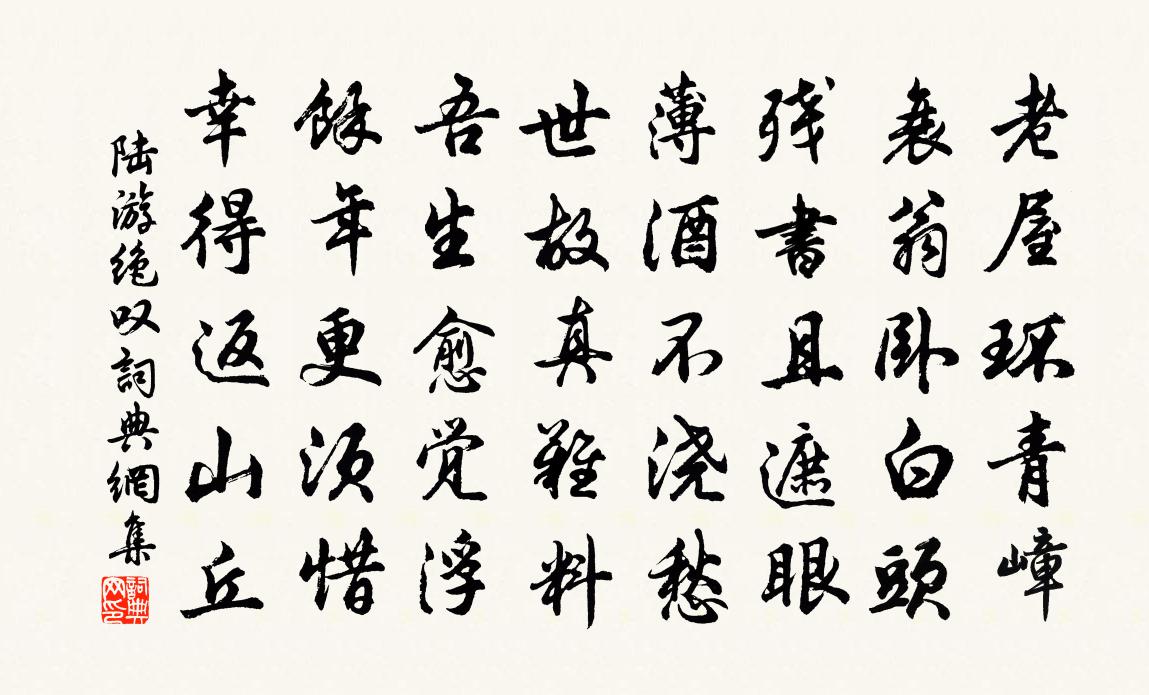 老屋环青嶂
衰翁卧白頭
残書且遮眼
薄酒不浇愁
世故真難料
吾生愈觉浮
餘年更须惜
幸得返山丘
陆游绝叹詞典網集
詞典网印